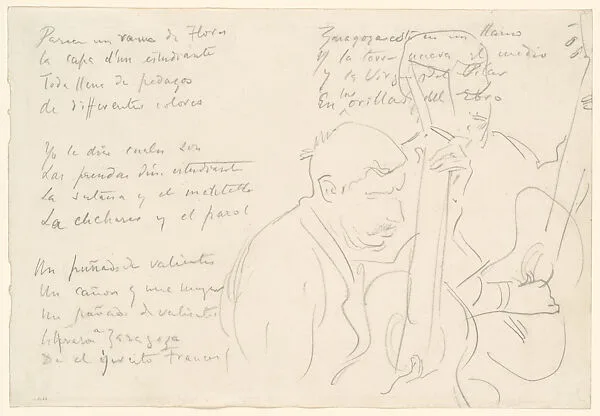 Parecen un ramo de flores
la capa d'un estudiante
Toda llena de pedazos
de differentes colores
Yo le dire cuales son
Las prendas d'un estudiante
La sutana y el
La chchara y el
Un puñado de valientes
Un cañon y una mujer
Un puñado de valientes
Zaragoza
De el ejercito Frances
Zaragoza esta en un llano
Y la torre nueva el medio
y la Virgen del Pilar
En las orillas del Ebro